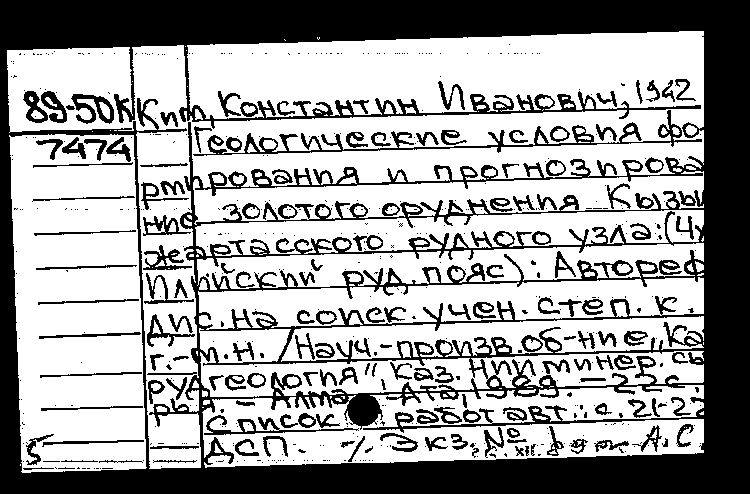 89-50к Ким, Константин Иванович, 1942
7474 Геологические условия фо-
рмирования и прогнозирова
ние золотого оруднения Кызы
жартасского рудного узла: (Чу
Илийский руд. пояс): Автореф
дис. на соиск. учен. степ. к.
г.-м.н. /Науч.-произв. об-ние „Ка
рудгеология", Каз. НИИ минер. сы
рья. - Алма-Ата, 1989. - 22с.
Список работ авт.: с. 21-22
5 ДСП. Экз. № А.С.